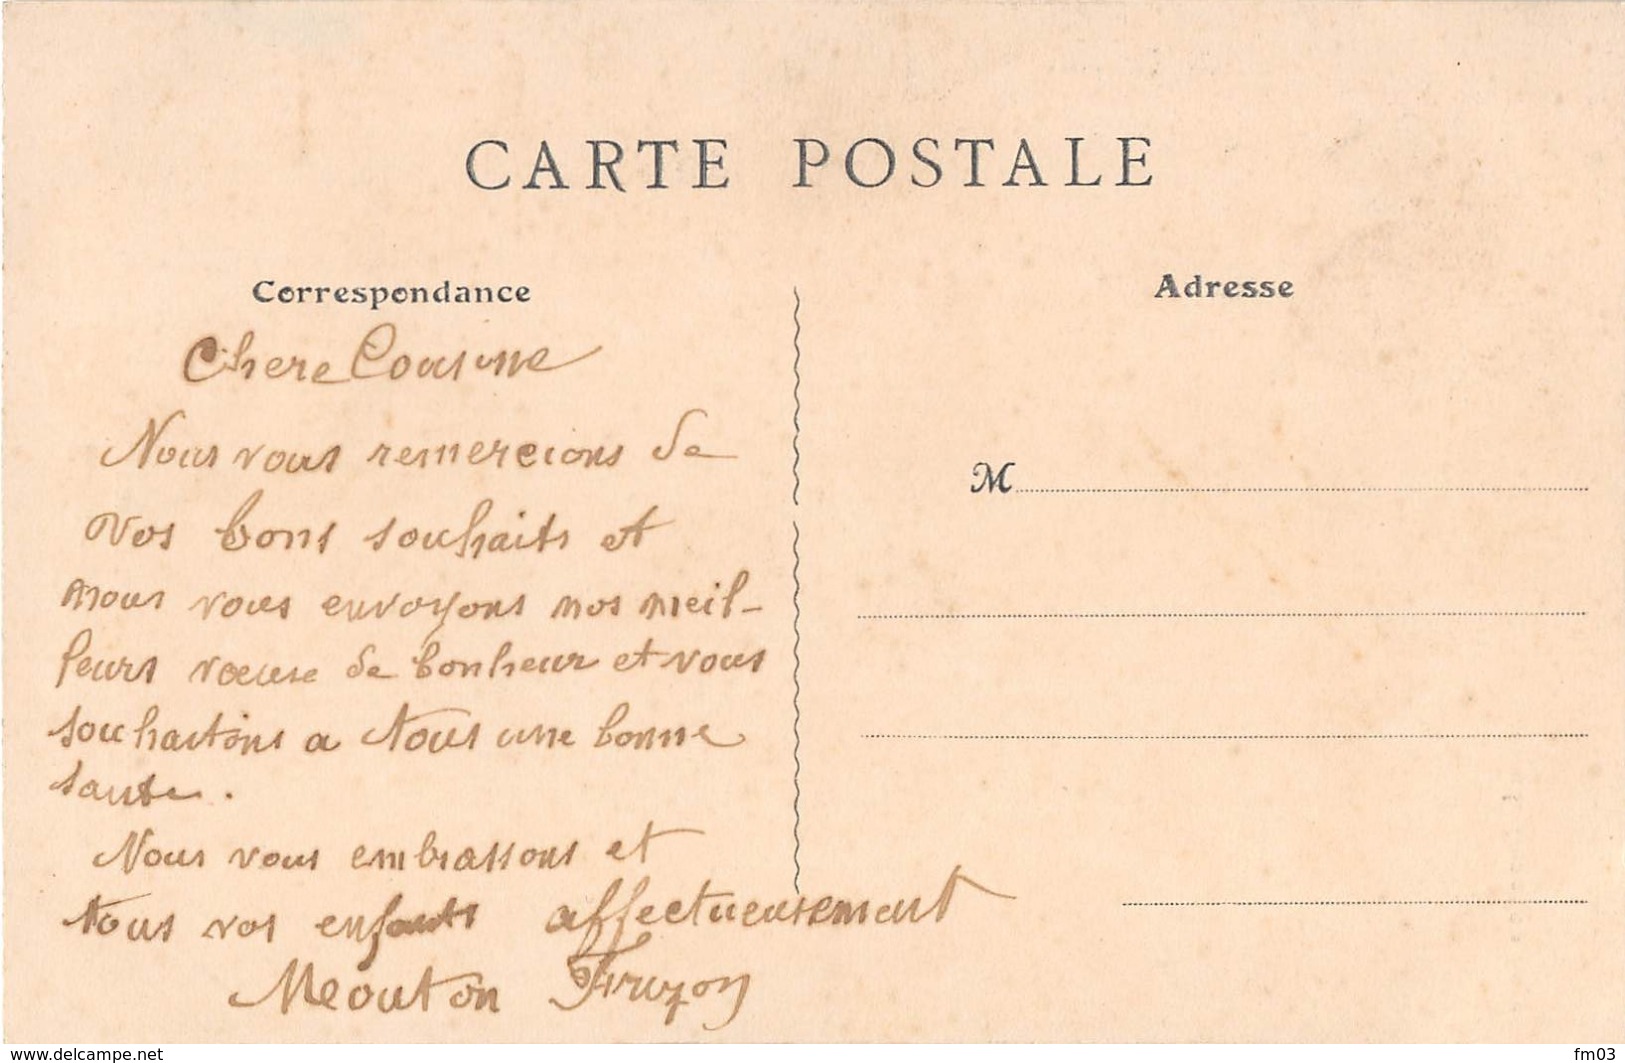 CARTE POSTALE
Correspondance
Adresse
Chere Cousine
Nous vous remercions de
vos bons souhaits et
nous vous envoyons nos meil-
leurs vœuse de bonheur et vous
souhaitons a tous une bonne
sante.
Nous vous embrassons et
tous vos enfants affectueusement
Meouton
M
www.delcampe.net
fm03